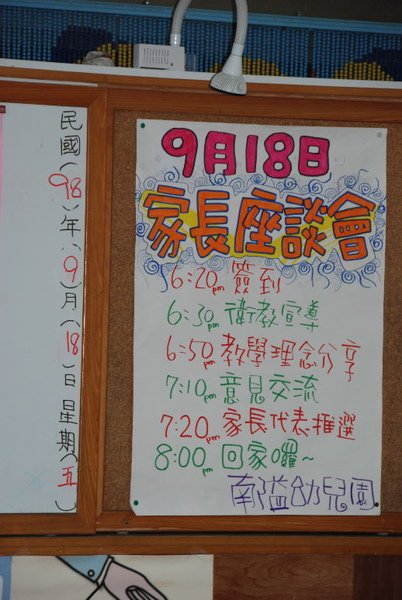 民國(98)年(9)月(18)日星期(五)
9月18日
家長座談會
6:20pm 簽到
6:30pm 衛教宣導
6:50pm 教學理念分享
7:10pm 意見交流
7:20pm 家長代表推選
8:00pm 回家囉~
南隘幼兒園